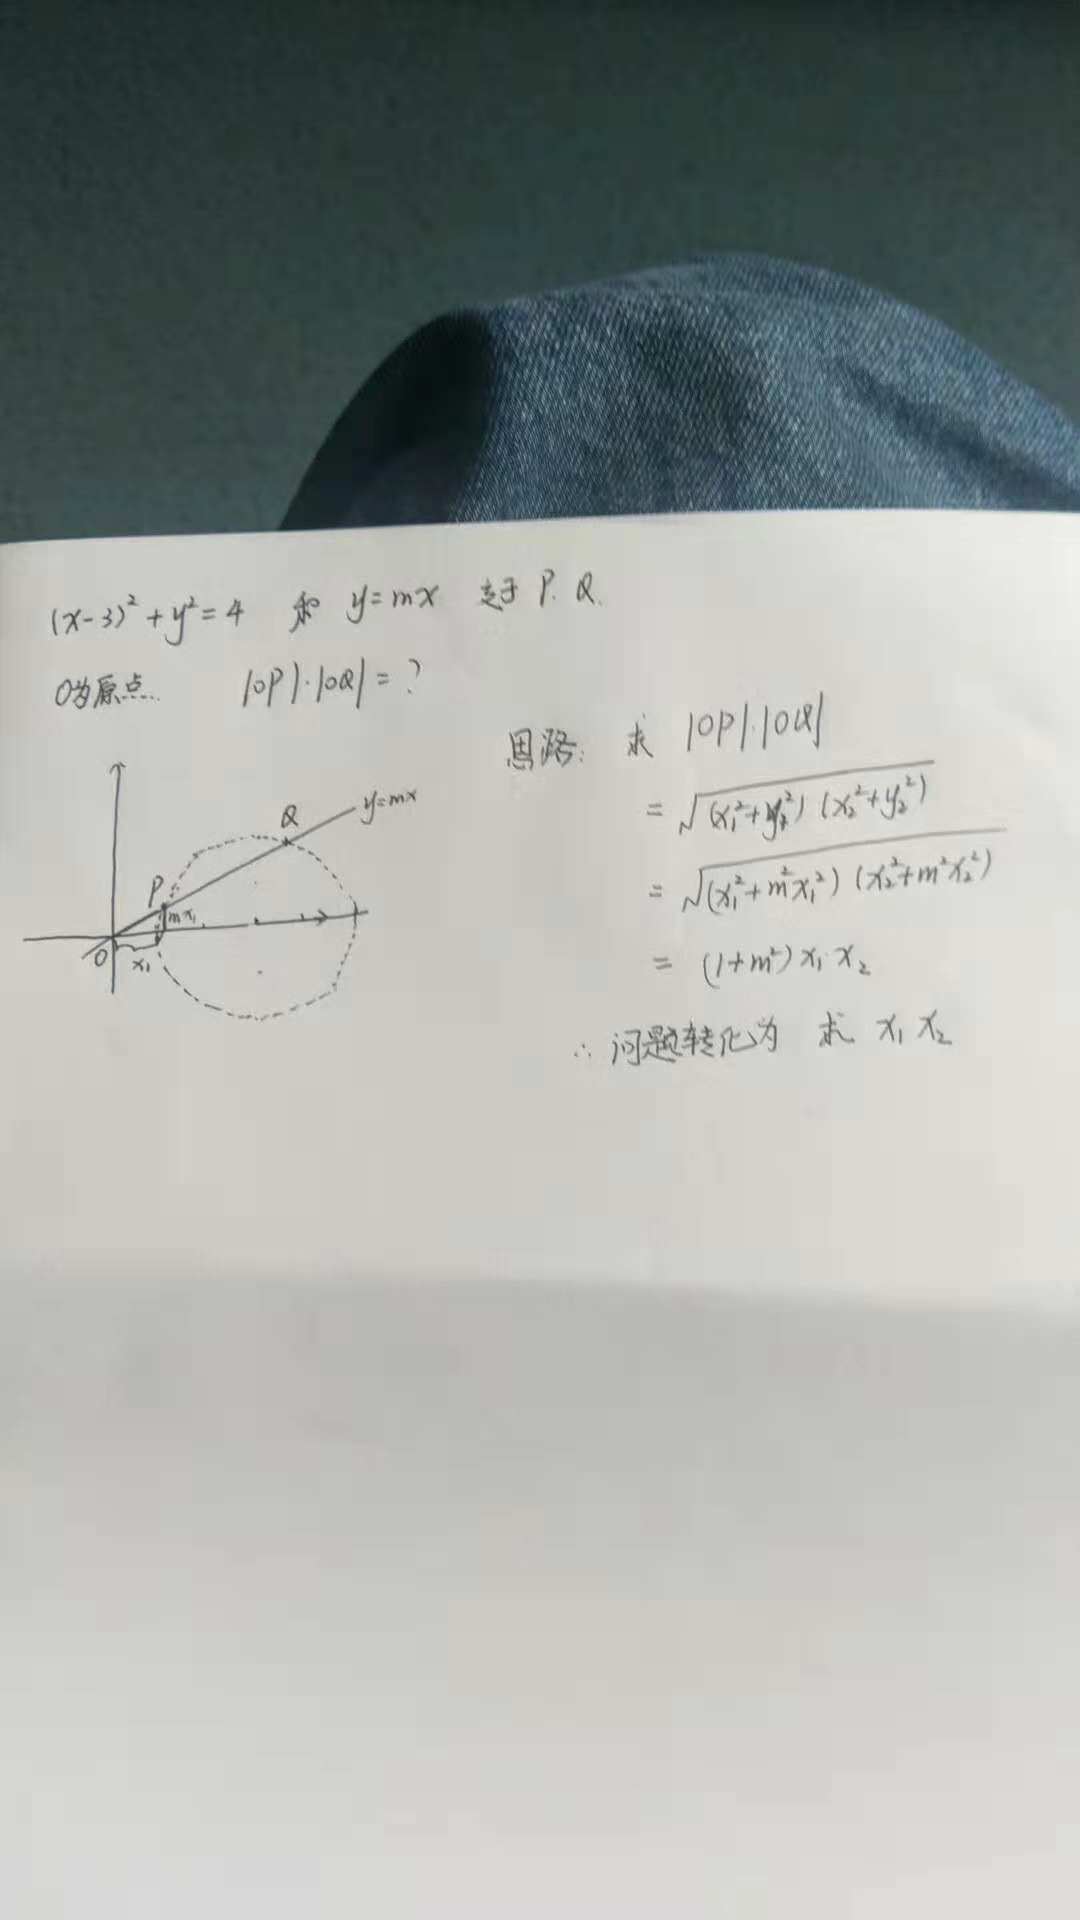 (x-3)²+y²=4 和 y=mx 交于 P.Q.
O为原点. |OP|·|OQ|=?
y=mx
Q
P
mx₁
O
x₁
思路: 求 |OP|·|OQ|
=√(x₁²+y₁²)(x₂²+y₂²)
=√(x₁²+m²x₁²)(x₂²+m²x₂²)
= (1+m²)x₁·x₂
∴问题转化为 求 x₁x₂